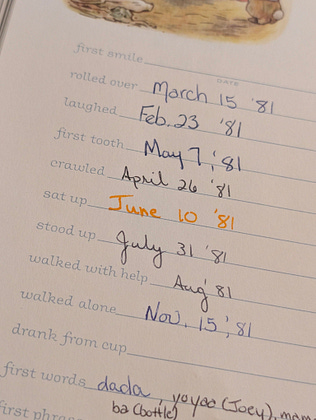 first smile
DATE
rolled over March 15 '81
laughed Feb. 23 '81
first tooth May 7, '81
crawled April 26 '81
sat up June 10 '81
stood up July 31 '81
walked with help Aug '81
walked alone Nov. 15, '81
drank from cup
first words dada, yoyoo (Joey),
ba (bottle)
first